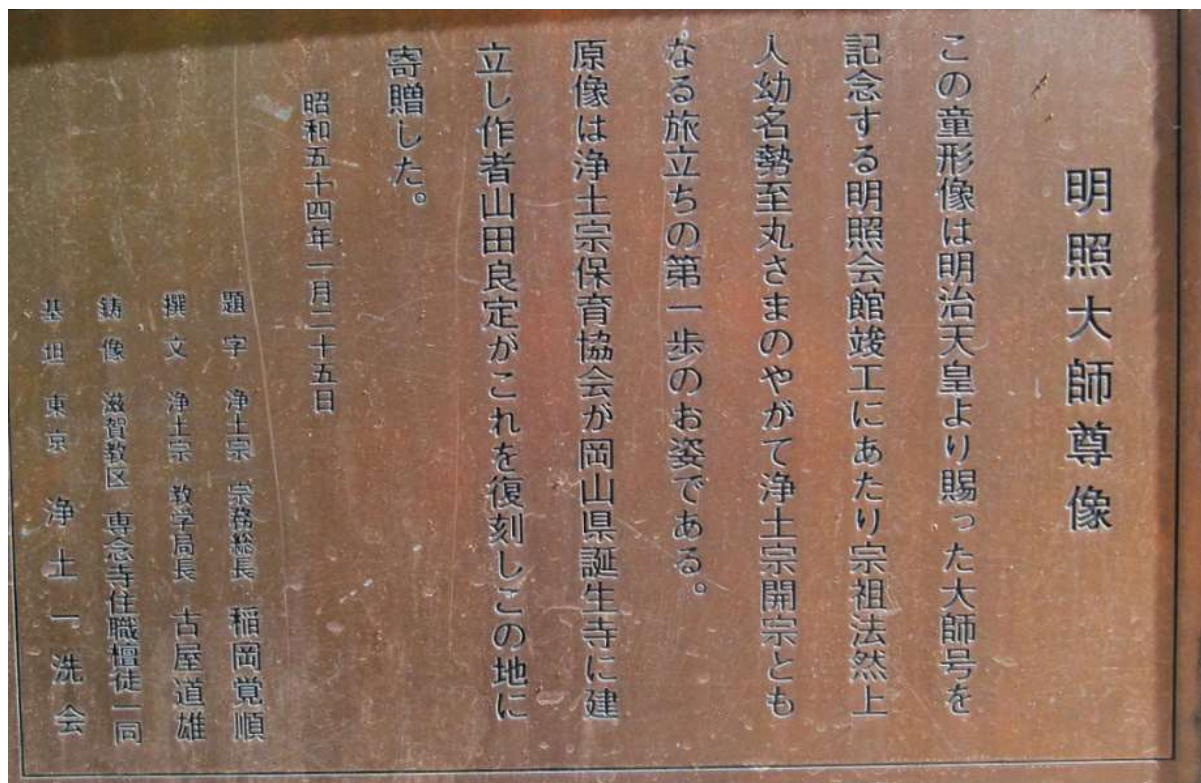 明照大師尊像
この童形像は明治天皇より賜った大師号を
記念する明照会館竣工にあたり宗祖法然上
人幼名勢至丸さまのやがて浄土宗開宗とも
なる旅立ちの第一歩のお姿である。
原像は浄土宗保育協会が岡山県誕生寺に建
立し作者山田良定がこれを復刻しこの地に
寄贈した。
昭和五十四年一月二十五日
題字 浄土宗 宗務総長 稲岡覚順
撰文 浄土宗 教学局長 古屋道雄
鋳像 滋賀教区 専念寺住職檀徒一同
基坦 東京 浄土一洗会